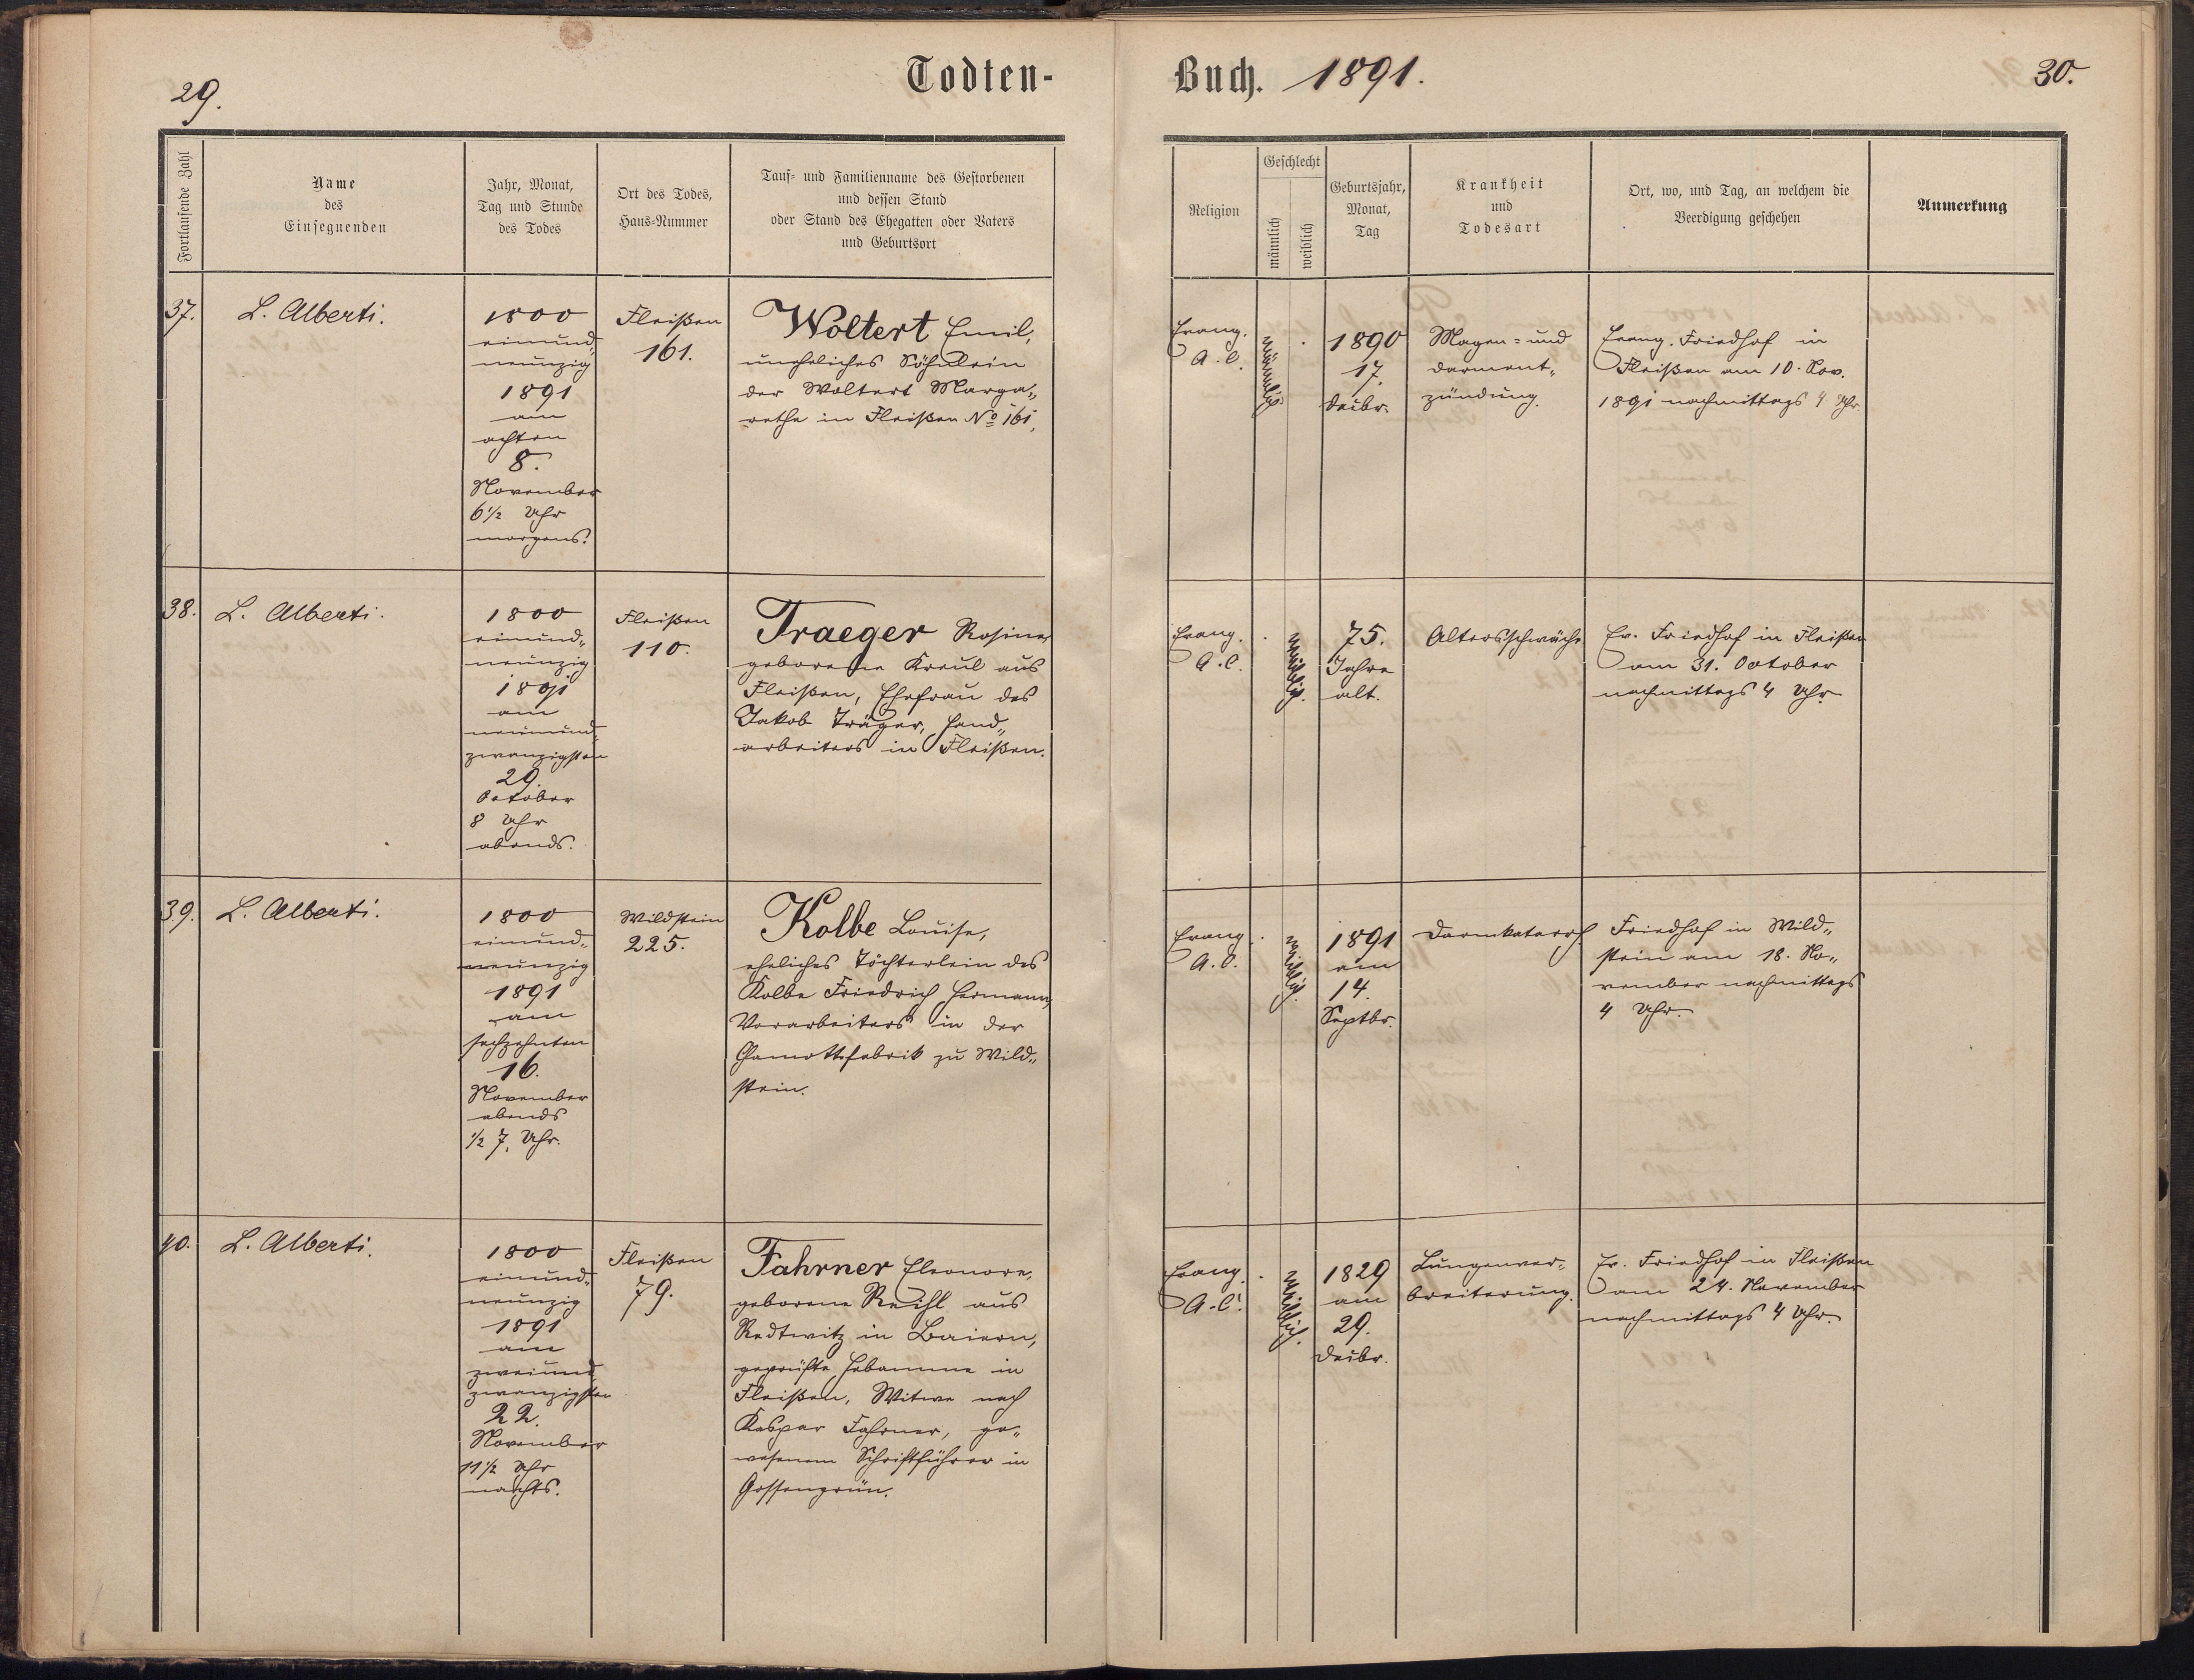 29.
Todten-
Fortlaufende Zahl
Name
des
Einsegnenden
Jahr, Monat,
Tag und Stunde
des Todes
Ort des Todes,
Haus-Nummer
Tauf- und Familienname des Gestorbenen
und dessen Stand
oder Stand des Ehegatten oder Vaters
und Geburtsort
37.
L. Alberti.
1800
einund-
neunzig
1891
am
achten
8.
November
6½ Uhr
morgens.
Fleißen
161.
Woltert Emil,
uneheliches Söhnlein
der Woltert Marga-
rethe in Fleißen No 161.
38.
L. Alberti.
1800
einund-
neunzig
1891
am
neunund-
zwanzigsten
29.
October
8 Uhr
abends.
Fleißen
110.
Traeger Rosina,
geborene Kreul aus
Fleißen, Ehefrau des
Jakob Träger, Hand-
arbeiters in Fleißen.
39.
L. Alberti.
1800
einund-
neunzig
1891
am
sechzehnten
16.
November
abends
½ 7. Uhr.
Wildstein
225.
Kolbe Louise,
eheliches Töchterlein des
Kolbe Friedrich Hermann,
Vorarbeiters in der
Chamottfabrik zu Wild-
stein.
40.
L. Alberti.
1800
einund-
neunzig
1891
am
zweiund-
zwanzigsten
22.
November
11½ Uhr
nachts.
Fleißen
79.
Fahrner Eleonore,
geborene Reihl aus
Redtwitz in Baiern,
geprüfte Hebamme in
Fleißen, Witwe nach
Kaspar Fahrner, ge-
wesenem Schriftführer in
Gossengrün.
Buch. 1891.
30.
Religion
Geschlecht
männlich
weiblich
Geburtsjahr,
Monat,
Tag
Krankheit
und
Todesart
Ort, wo, und Tag, an welchem die
Beerdigung geschehen
Anmerkung
Evang.
A. C.
männlich
1890
17.
Dezbr.
Magen- und
Darment-
zündung.
Evang. Friedhof in
Fleißen am 10. Nov.
1891 nachmittags 4 Uhr
Evang.
A. C.
weiblich.
75.
Jahre
alt.
Altersschwäche
Ev. Friedhof in Fleißen
am 31. October
nachmittags 4 Uhr.
Evang.
A. C.
weiblich.
1891
am
14.
Septbr.
Darmkatarrh
Friedhof in Wild-
stein am 18. No-
vember nachmittags
4 Uhr.
Evang.
A. C.
weiblich.
1829
am
29.
Dezbr.
Lungenver-
breiterung.
Ev. Friedhof in Fleißen
am 24. November
nachmittags 4 Uhr.